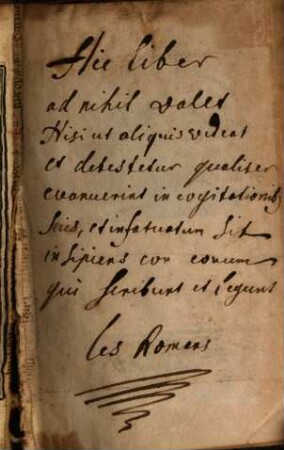 Hic liber
ad nihil valet
Nisi ut aliquis videat
et detestetur qualiter
evanuerint in cogitationib;
suis, et infatuatum sit
insipiens cor eorum
qui scribunt et legunt
les Romans